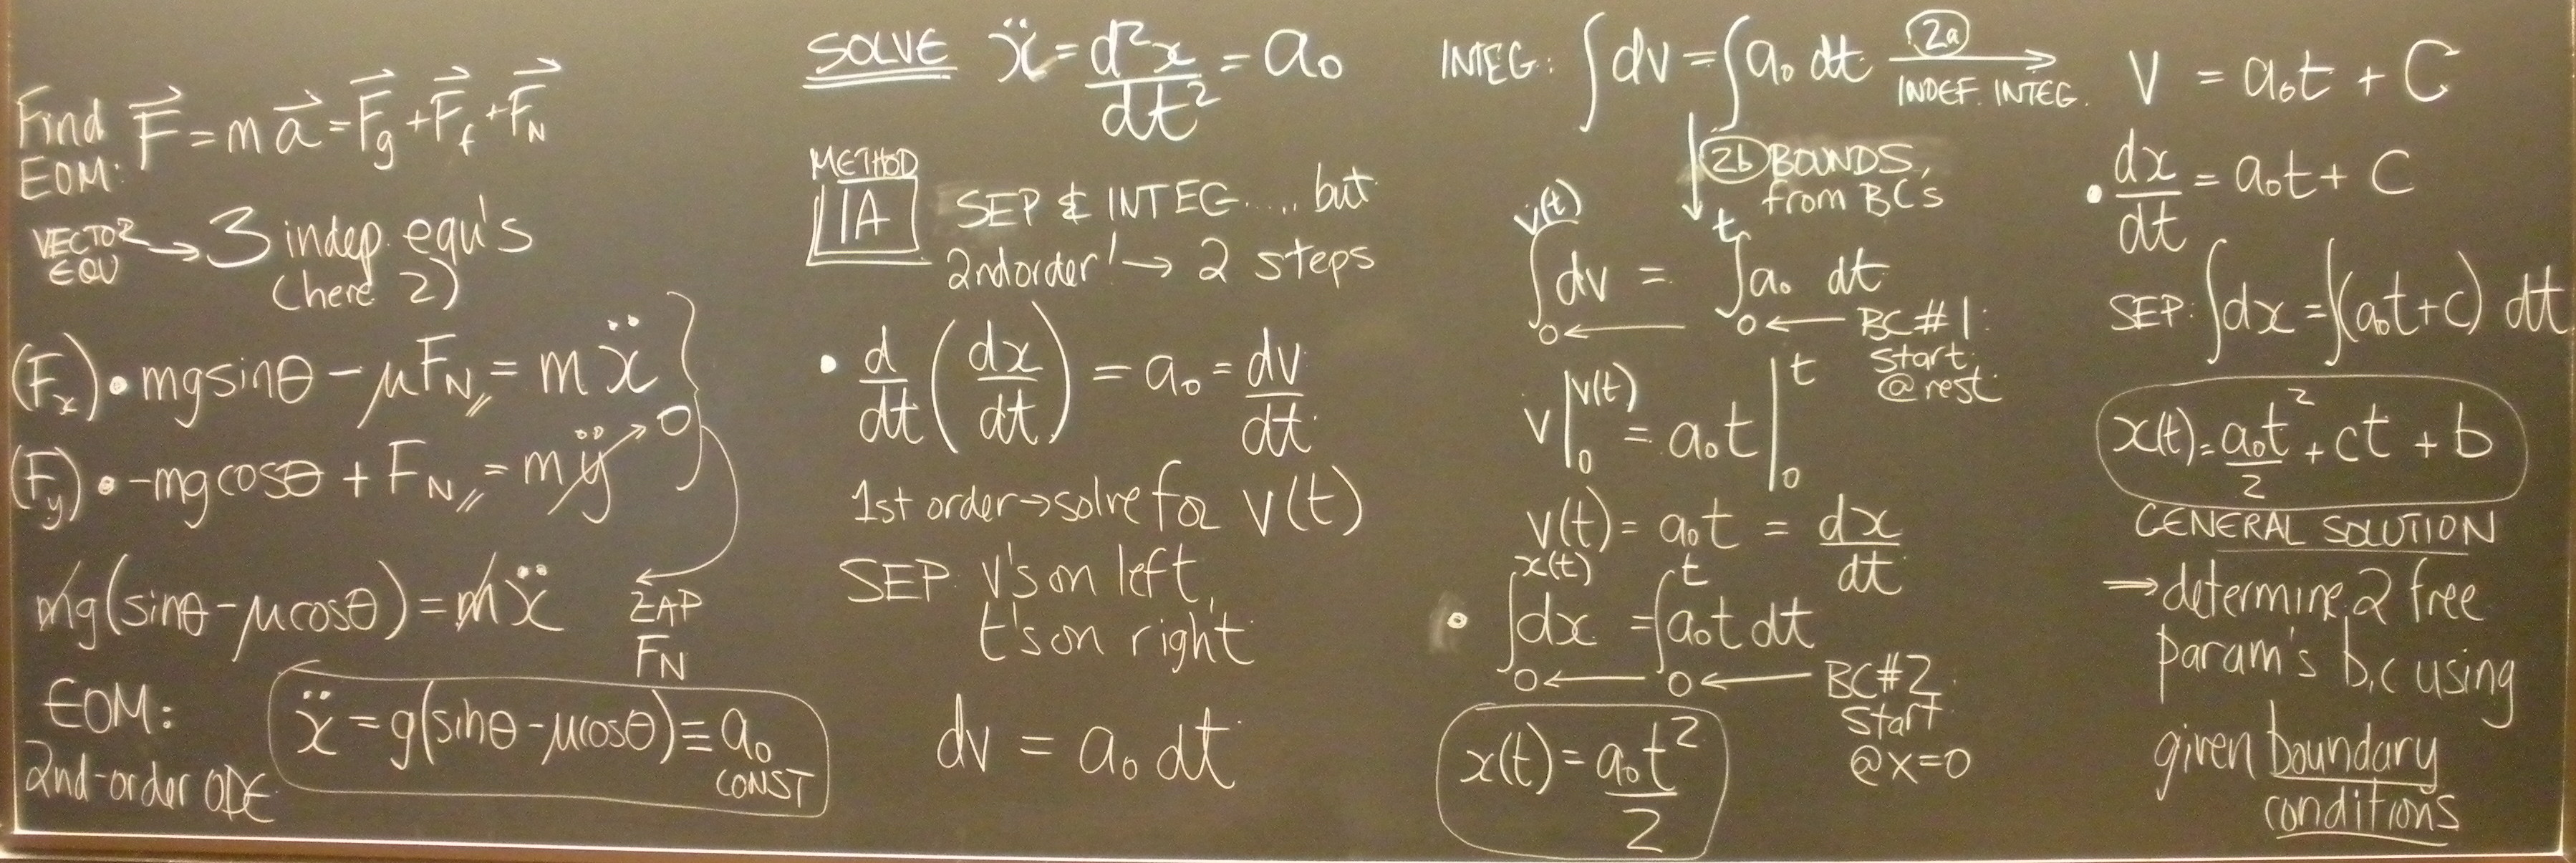 Find F⃗ = m a⃗ = F⃗g + F⃗f + F⃗N
EOM:
VECTOR EQU → 3 indep. equ's
(here 2)
(Fx) • mg sinθ - μFN = m ẍ
(Fy) • -mg cosθ + FN = m ÿ → 0
mg(sinθ - μcosθ) = m ẍ
ZAP
FN
EOM: ẍ = g(sinθ - μcosθ) ≡ a₀
CONST
2nd-order ODE
SOLVE ẍ = d²x/dt² = a₀
METHOD
1A SEP & INTEG .... but
2nd order! → 2 steps
• d/dt (dx/dt) = a₀ = dv/dt
1st order → solve for v(t)
SEP v's on left,
t's on right
dv = a₀ dt
INTEG: ∫dv = ∫a₀ dt
2a
INDEF. INTEG.
2b BOUNDS,
from BC's
∫₀^v(t) dv = ∫₀^t a₀ dt
0 ← 0 ← BC#1:
Start
@ rest
v|₀^v(t) = a₀t|₀^t
v(t) = a₀t = dx/dt
• ∫₀^x(t) dx = ∫₀^t a₀t dt
0 ← 0 ← BC#2
Start
@x=0
x(t) = a₀t²/2
V = a₀t + C
• dx/dt = a₀t + C
SEP: ∫dx = ∫(a₀t+c) dt
x(t) = a₀t²/2 + ct + b
GENERAL SOLUTION
⇒ determine 2 free
param's b,c using
given boundary
conditions